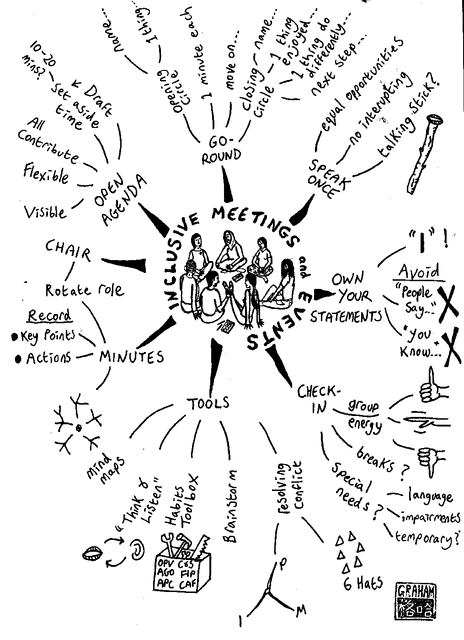 INCLUSIVE MEETINGS
and
EVENTS
GO-
ROUND
Opening
Circle
name...
1 thing...
1 minute each
move on...
closing
Circle
name...
1 thing
enjoyed...
1 thing do
differently...
next step...
SPEAK
ONCE
equal opportunities
no interupting
talking stick?
OWN
YOUR
STATEMENTS
"I"!
Avoid
"People
Say..."
"You
Know..."
CHECK-
IN
group
energy
breaks?
Special
needs?
language
impairments
temporary?
TOOLS
resolving
conflict
6 Hats
P
I
M
Brainstorm
Habits
Toolbox
OPV C&S
AGO FIP
APC CAF
"Think &
Listen"
mind
maps
MINUTES
Record
Key Points
Actions
Rotate role
CHAIR
OPEN
AGENDA
Visible
Flexible
All
Contribute
Draft
set aside
time
10-20
mins?
GRAHAM